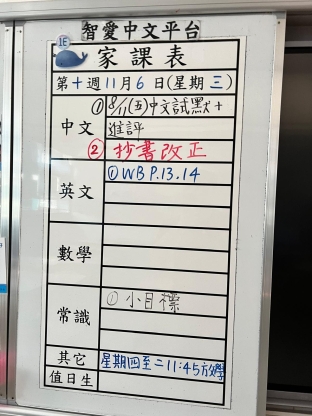 智愛中文平台
1E
家課表
第十週11月6日(星期三)
中文
① 8/11(五)中文試默+
進評
② 抄書改正
英文
① WB P.13.14
數學
常識
① 小目標
其它
星期四至二11:45放學
值日生